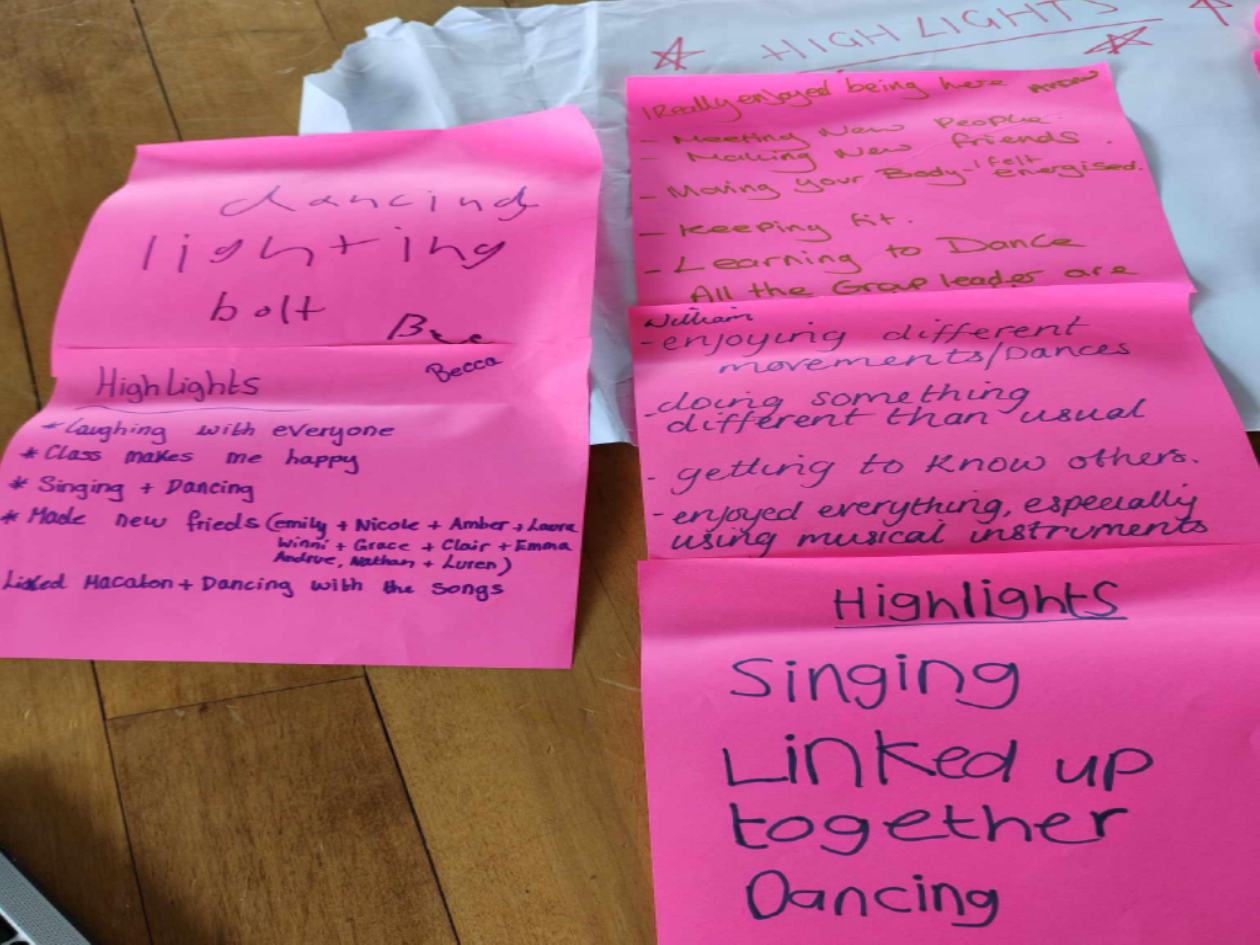 HIGHLIGHTS
dancing
lighting
bolt
Highlights
Becca
* Laughing with everyone
* Class makes me happy
* Singing + Dancing
* Made new frieds (emily + Nicole + Amber + Laura
Winni + Grace + Clair + Emma
Andrue, Nathan + Luren)
Macaton + Dancing with the songs
I Really enjoyed being here
- Meeting New People
- Making New friends.
- Moving your Body - I felt energised.
- Keeping fit.
- Learning to Dance
All the Group leader are
William
- enjoying different
movements/Dances
- doing something
different than usual
- getting to know others.
- enjoyed everything, especially
using musical instruments
Highlights
Singing
Linked up
together
Dancing